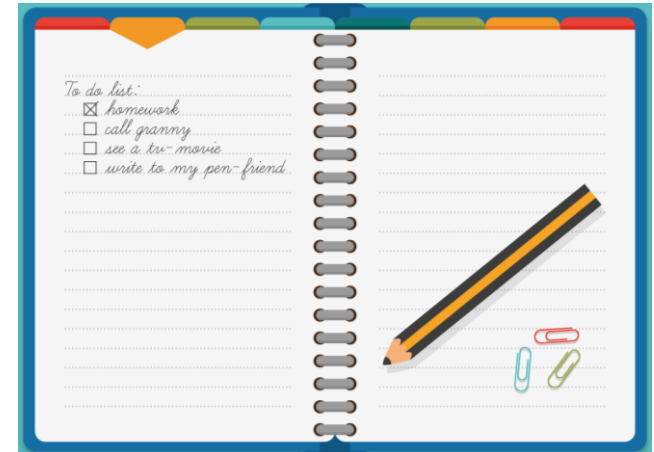 To do list:
homework
call granny
see a tv-movie
write to my pen-friend